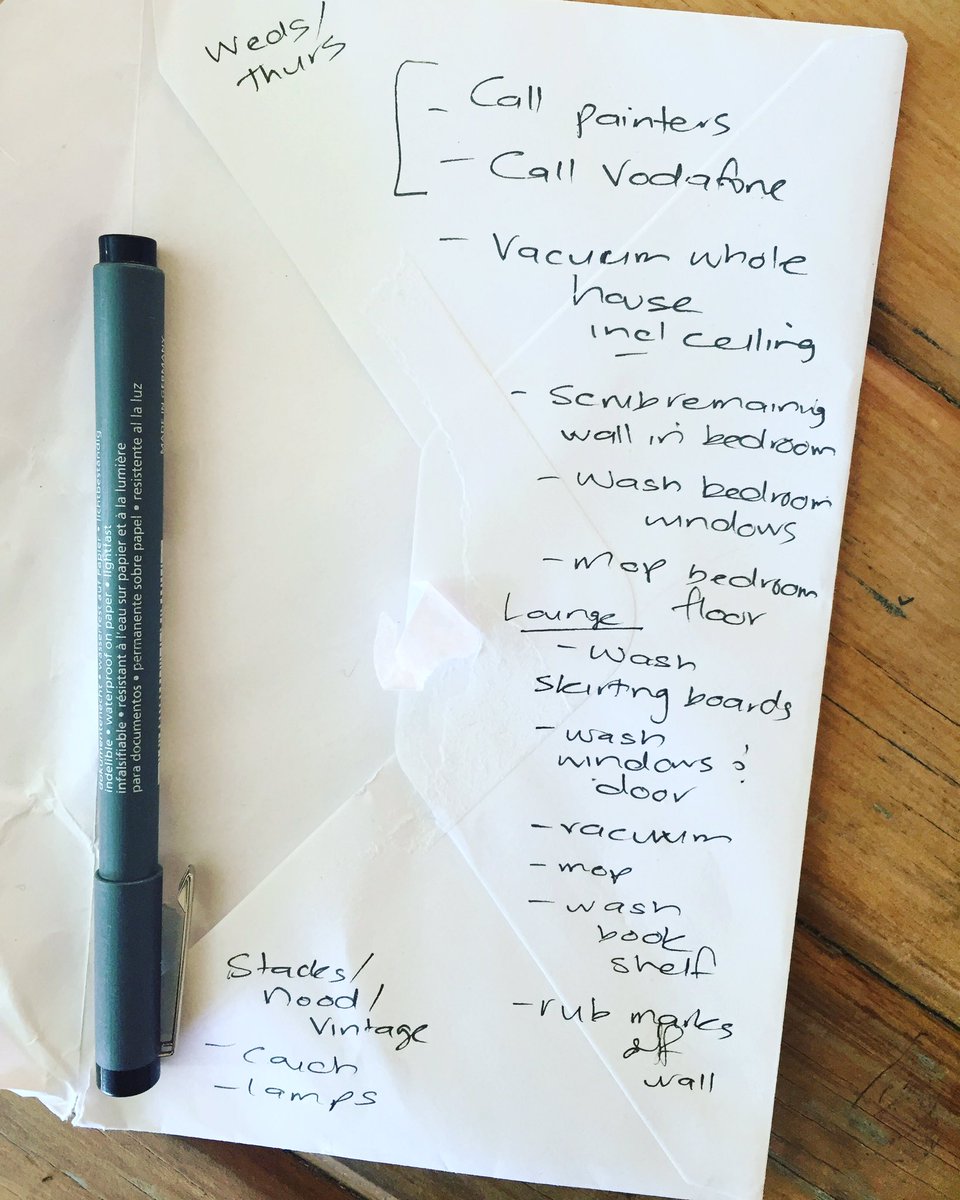 Weds/
thurs
- Call
painters
- Call Vodafone
- Vacuum whole
house
incl ceiling
- Scrub remaining
wall in bedroom
- Wash bedroom
windows
- Mop bedroom
floor
Lounge
- Wash
skirting boards
- wash
windows &
door
- vacuum
- mop
- wash
book
shelf
- rub marks
off
wall
Stacks/
nood/
vintage
- couch
- lamps
MADE IN GERMANY
indelible • waterproof on paper • lightfast
infalsifiable • résistant à l'eau sur papier et à la lumière
para documentos • permanente sobre papel • resistente al la luz